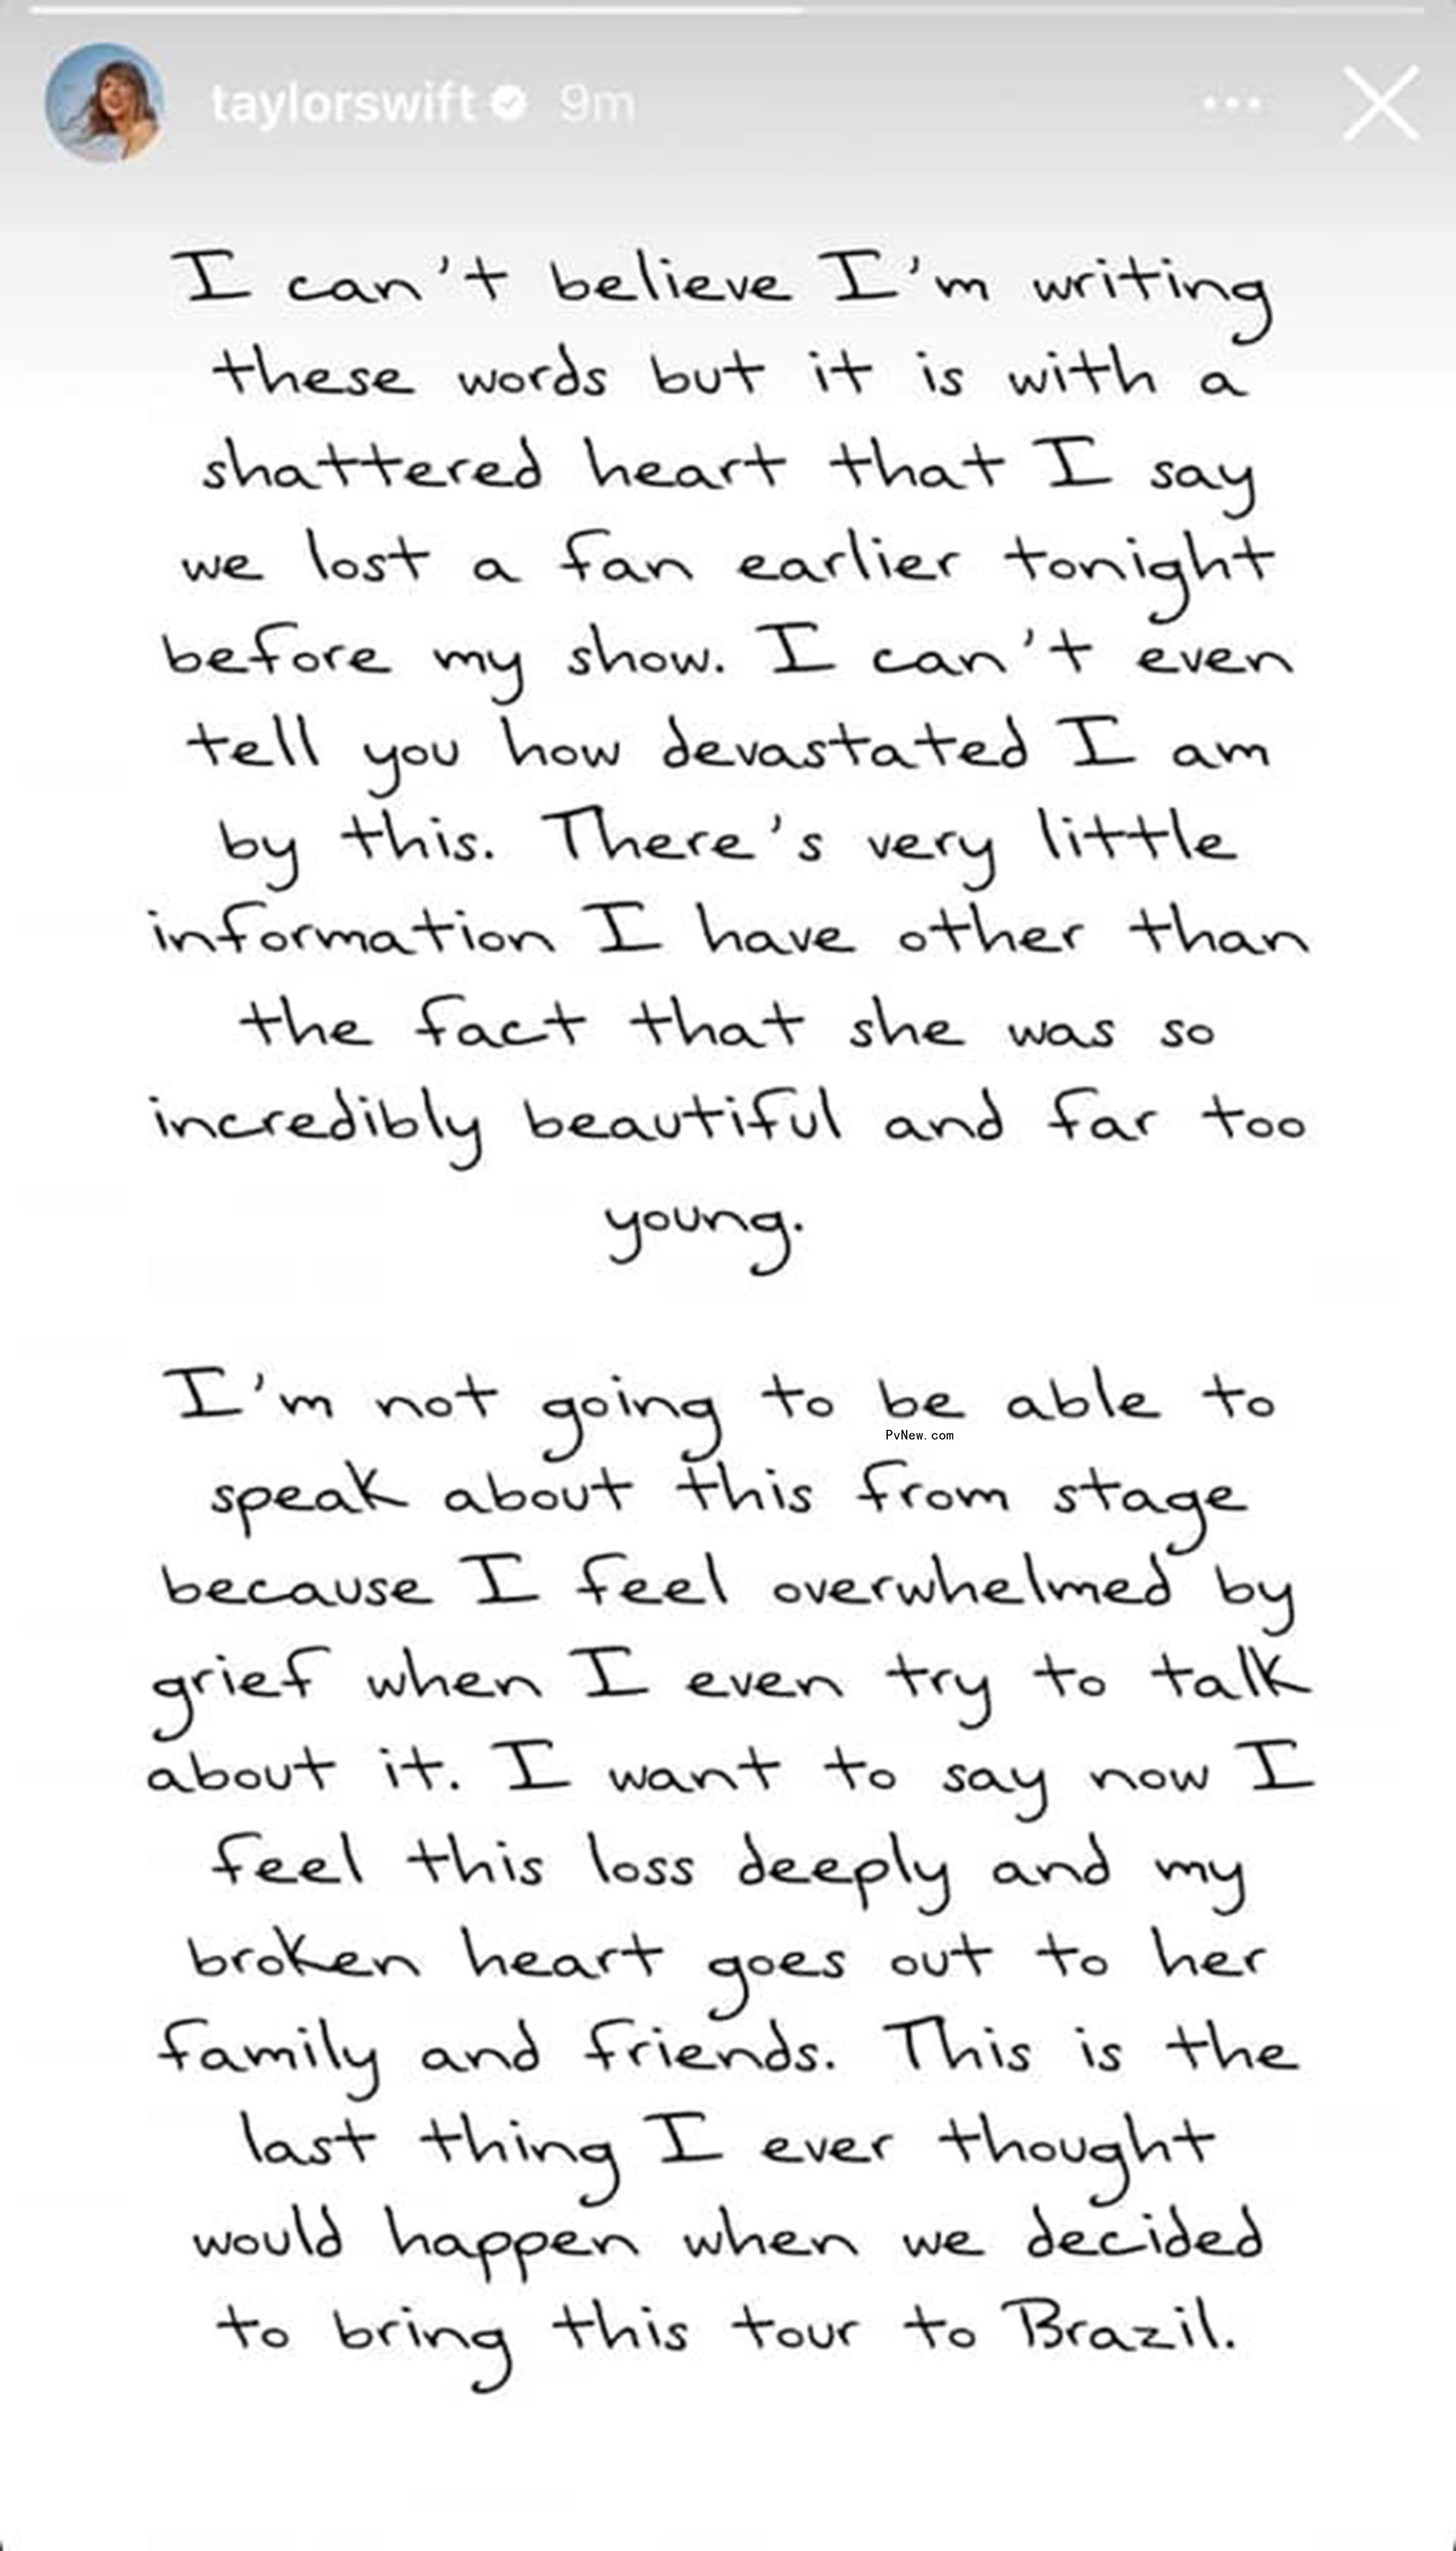 taylorswift 9m
I can't believe I'm writing
these words but it is with a
shattered heart that I say
we lost a fan earlier tonight
before my show. I can't even
tell you how devastated I am
by this. There's very little
information I have other than
the fact that she was so
incredibly beautiful and far too
young.
I'm not going to be able to
PvNew.com
speak about this from stage
because I feel overwhelmed by
grief when I even try to talk
about it. I want to say now I
feel this loss deeply and my
broken heart goes out to her
family and friends. This is the
last thing I ever thought
would happen when we decided
to bring this tour to Brazil.